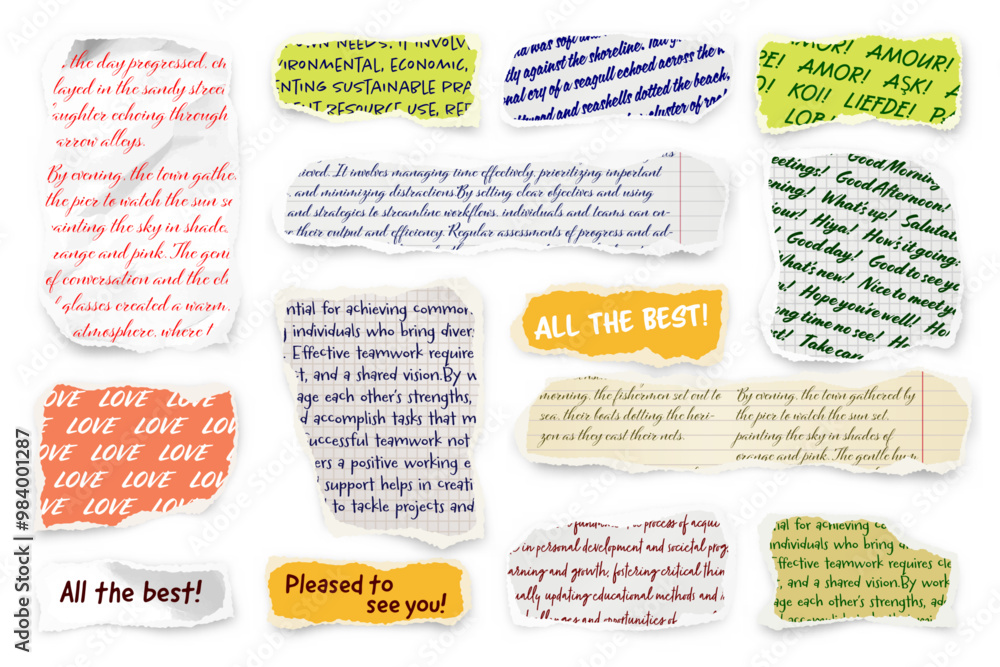 the day progressed, ch
layed in the sandy street
aughter echoing through
arrow alleys.
By evening, the town gathe
the pier to watch the sun se
ainting the sky in shade
range and pink. The gent
of conversation and the cli
glasses created a warm,
atmosphere, where t
OWN NEEDS. IT INVOLV
IRONMENTAL, ECONOMIC,
NTING SUSTAINABLE PRA
RESOURCE USE, RED
was soft
tly against the shoreline.
nal cry of a seagull echoed across the
and seashells dotted the beach,
cluster of
AMOR! AMOUR!
PE! AMOR! AŞK!
O! KOI! LIEFDE! P
LOB
ieved. It involves managing time effectively, prioritizing important
, and minimizing distractions.By setting clear objectives and using
and strategies to streamline workflows, individuals and teams can en-
e their output and efficiency. Regular assessments of progress and ad-
Good Morning
eetings! Good Afternoon!
ening! What's up! Salutat
jour! Hiya! How's it going:
Good day! Good to see yo
What's new! Nice to meet y
u! Hope you're well! Ho
ong time no see! H
st! Take care
ntial for achieving common
individuals who bring divers
. Effective teamwork require
t, and a shared vision.By w
age each other's strengths,
d accomplish tasks that m
uccessful teamwork not
ers a positive working e
support helps in creati
to tackle projects and
ALL THE BEST!
morning, the fishermen set out to
sea, their boats dotting the hori-
zon as they cast their nets.
By evening, the town gathered by
the pier to watch the sun set,
painting the sky in shades of
orange and pink. The gentle hum
OVE LOVE LOVE
E LOVE LOVE LOV
OVE LOVE LOVE
E LOVE LOVE LOV
LOVE LOVE LOV
All the best!
Pleased to
see you!
process of acqui
in personal development and societal prog
arning and growth, fostering critical thin
ally updating educational methods and i
allenges and opportunities of
ial for achieving co
individuals who bring d
ffective teamwork requires cle
and a shared vision.By work
age each other's strengths, ad
accomplish tasks that
Adobe Stock | #984001287